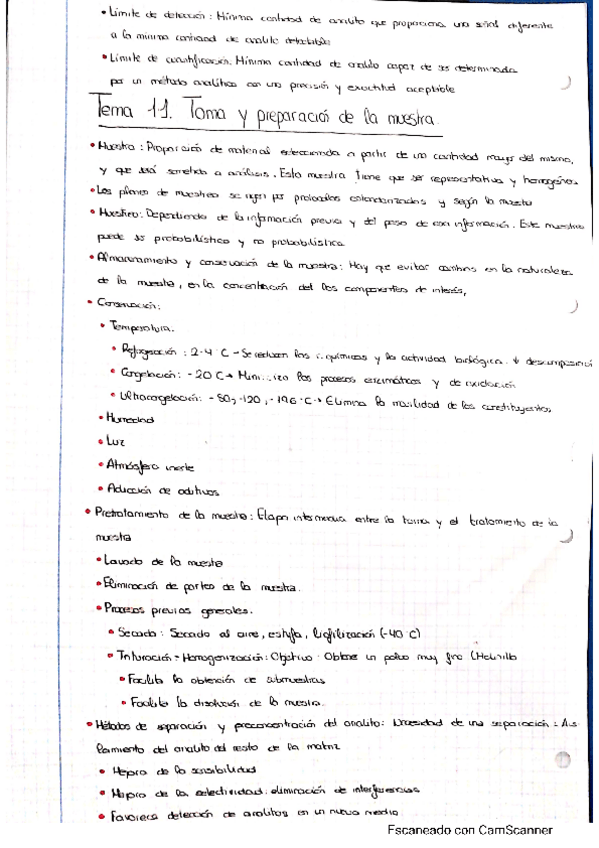 • Límite de detección: Mínima cantidad de analito que proporciona una señal diferente
a la mínima cantidad de analito detectable
• Límite de cuantificación: Mínima cantidad de analito capaz de ser determinada
por un método analítico con una precisión y exactitud aceptible
Tema 11. Toma y preparación de la muestra
• Muestra: Proporción de material seleccionada a partir de una cantidad mayor del mismo,
y que será sometida a análisis. Esta muestra tiene que ser representativa y homogénea
• Los planes de muestreo se rigen por protocolos estandarizados y según la muestra
• Muestreo: Dependiendo de la información previa y del peso de esa información. Este muestreo
puede ser probabilístico y no probabilística
• Almacenamiento y conservación de la muestra: Hay que evitar cambios en la naturaleza
de la muestra, en la concentración del los componentes de interés,
• Conservación:
• Temperatura.
• Refrigeración: 2-4 C - Se reducen las r. químicas y la actividad biológica. ↓ descomposición
• Congelación: -20 C → los procesos enzimáticos y de oxidación
• Ultracongelación: -80, -120, -196 C → Elimina la movilidad de los constituyentes
• Humedad
• Luz
• Atmósfera inerte
• Adicción de aditivos
• Pretratamiento de la muestra: Etapa intermedia entre la toma y el tratamiento de la
muestra
• Lavado de la muestra
• Eliminación de partes de la muestra.
• Procesos previos generales.
• Secado: Secado al aire, estufa, liofilización (-40 C)
• Trituración - Homogenización: Objetivo Obtener un polvo muy fino (Molinillo
• Facilita la obtención de submuestras
• Facilita la disolución de la muestra.
• Métodos de separación y preconcentración del analito: Necesidad de una separación: Ais
lamiento del analito del resto de la matriz
• Mejora de la sensibilidad
• Mejora de la selectividad: eliminación de interferencias
• Favorece detección de analitos en un nuevo medio.
Escaneado con CamScanner